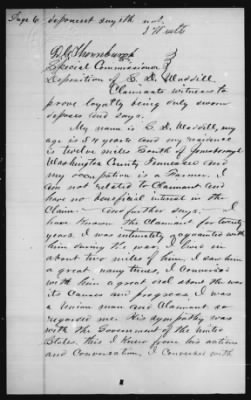 Page 6 deponent say'eth not.
J W
Special Commissioner
Deposition of E. D. Waddill,
Claimants witness to
prove loyalty being only sworn
deposes and says.
My name is E. D. Waddill, my
age is 54 years and my residence
is twelve miles South of Jonesborough
Washington County Tennessee and
my occupation is a Farmer. I
am not related to Claimant and
have no beneficial interest in the
Claim. And further says, I
have known the Claimant for twenty
years. I was intimately acquainted with
him during the war, I lived in
about two miles of him. I saw him
a great many times, I conversed
with him a great deal about the war
its causes and progress. I was
a Union man and Claimant so
regarded me. His sympathy was
with the Government of the United
States. this I knew from his actions
and conversation. I conversed with